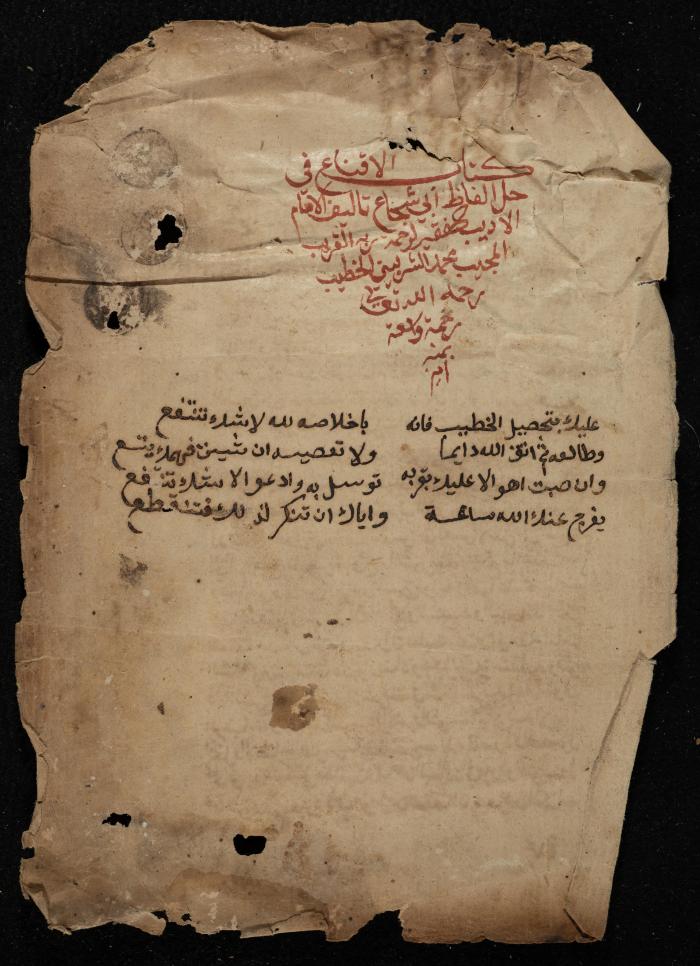 كتاب الاقناع في
حل الفاظ ابي شجاع تاليف الامام
الاديب الفقير لرحمة ربه القريب
المجيب محمد الشربيني الخطيب
رحمه الله تعالى
رحمة واسعة
بمنه
امين
عليك بتحصيل الخطيب فانه باخلاصه لله لاشك تنتفع
وطالعه ثم اتق الله دايما ولا تعصيه ان شيت
وان صبت اهوالا عليك بقربه توسل به وادعو الاشك تنتفع
يفرج عنك الله ساعة واياك ان تنكر لذلك فتنقطع